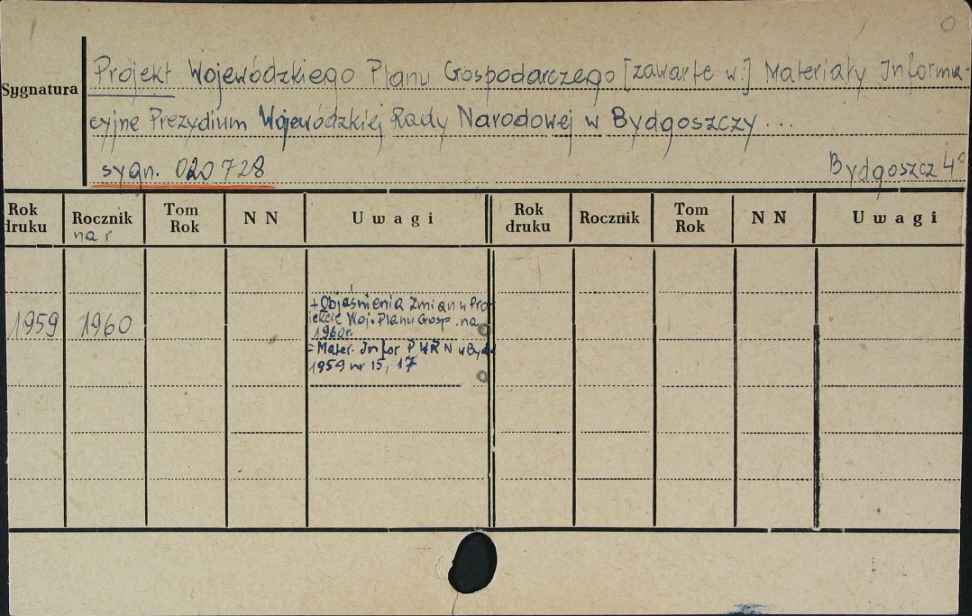 Sygnatura
Projekt Wojewódzkiego Planu Gospodarczego [zawarte w:] Materiały Informa-
cyjne Prezydium Wojewódzkiej Rady Narodowej w Bydgoszczy...
sygn. 020728 Bydgoszcz 4°
Rok druku Rocznik na r Tom Rok N N Uwagi Rok druku Rocznik Tom Rok N N Uwagi
1959 1960
+ Objaśnienia zmian w Pro
jekcie Woj. Planu Gosp. na
1960r.
= Mater. Infor PWRN w Byd
1959 nr 15, 17